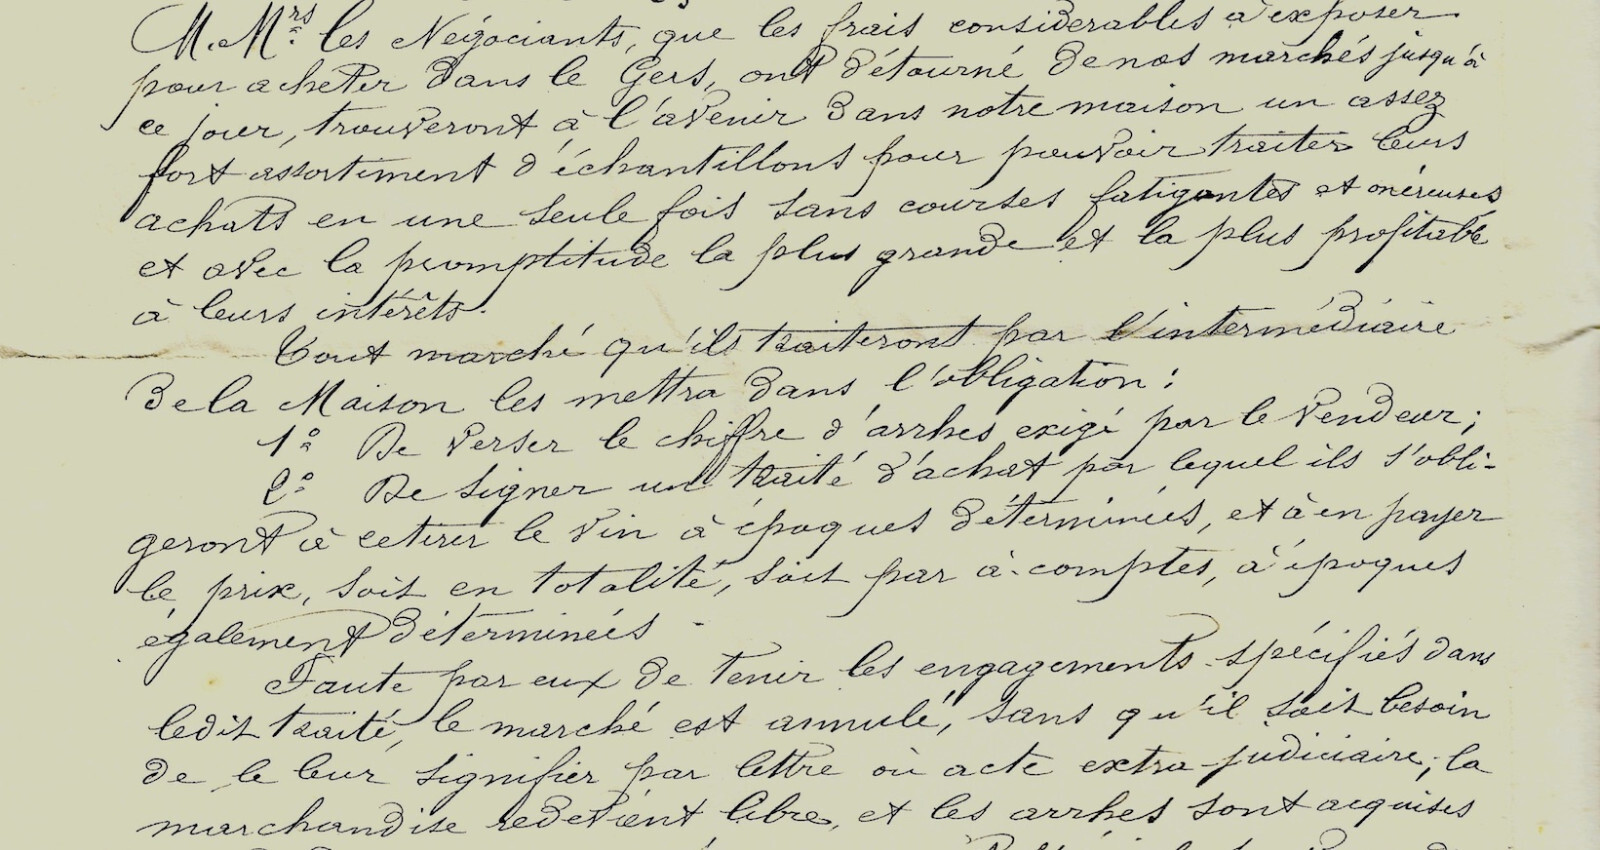 M.Mrs les Négociants, que les frais considérables à exposer
pour acheter dans le Gers, ont détourné de nos marchés jusqu'à
ce jour, trouveront à l'avenir dans notre maison un assez
fort assortiment d'échantillons pour pouvoir traiter leurs
achats en une seule fois sans courses fatigantes et onéreuses
et avec la promptitude la plus grande et la plus profitable
à leurs intérêts.
Tout marché qu'ils traiteront par l'intermédiaire
de la Maison les mettra dans l'obligation :
1° De verser le chiffre d'arrhes exigé par le vendeur ;
2° De signer un traité d'achat par lequel ils s'obli-
geront à retirer le vin à époques déterminées, et à en payer
le prix, soit en totalité, soit par à-comptes, à époques
également déterminées -
Faute par eux de tenir les engagements spécifiés dans
ledit traité, le marché est annulé, sans qu'il soit besoin
de le leur signifier par lettre où acte extra-judiciaire ; la
marchandise redevient libre, et les arrhes sont acquises